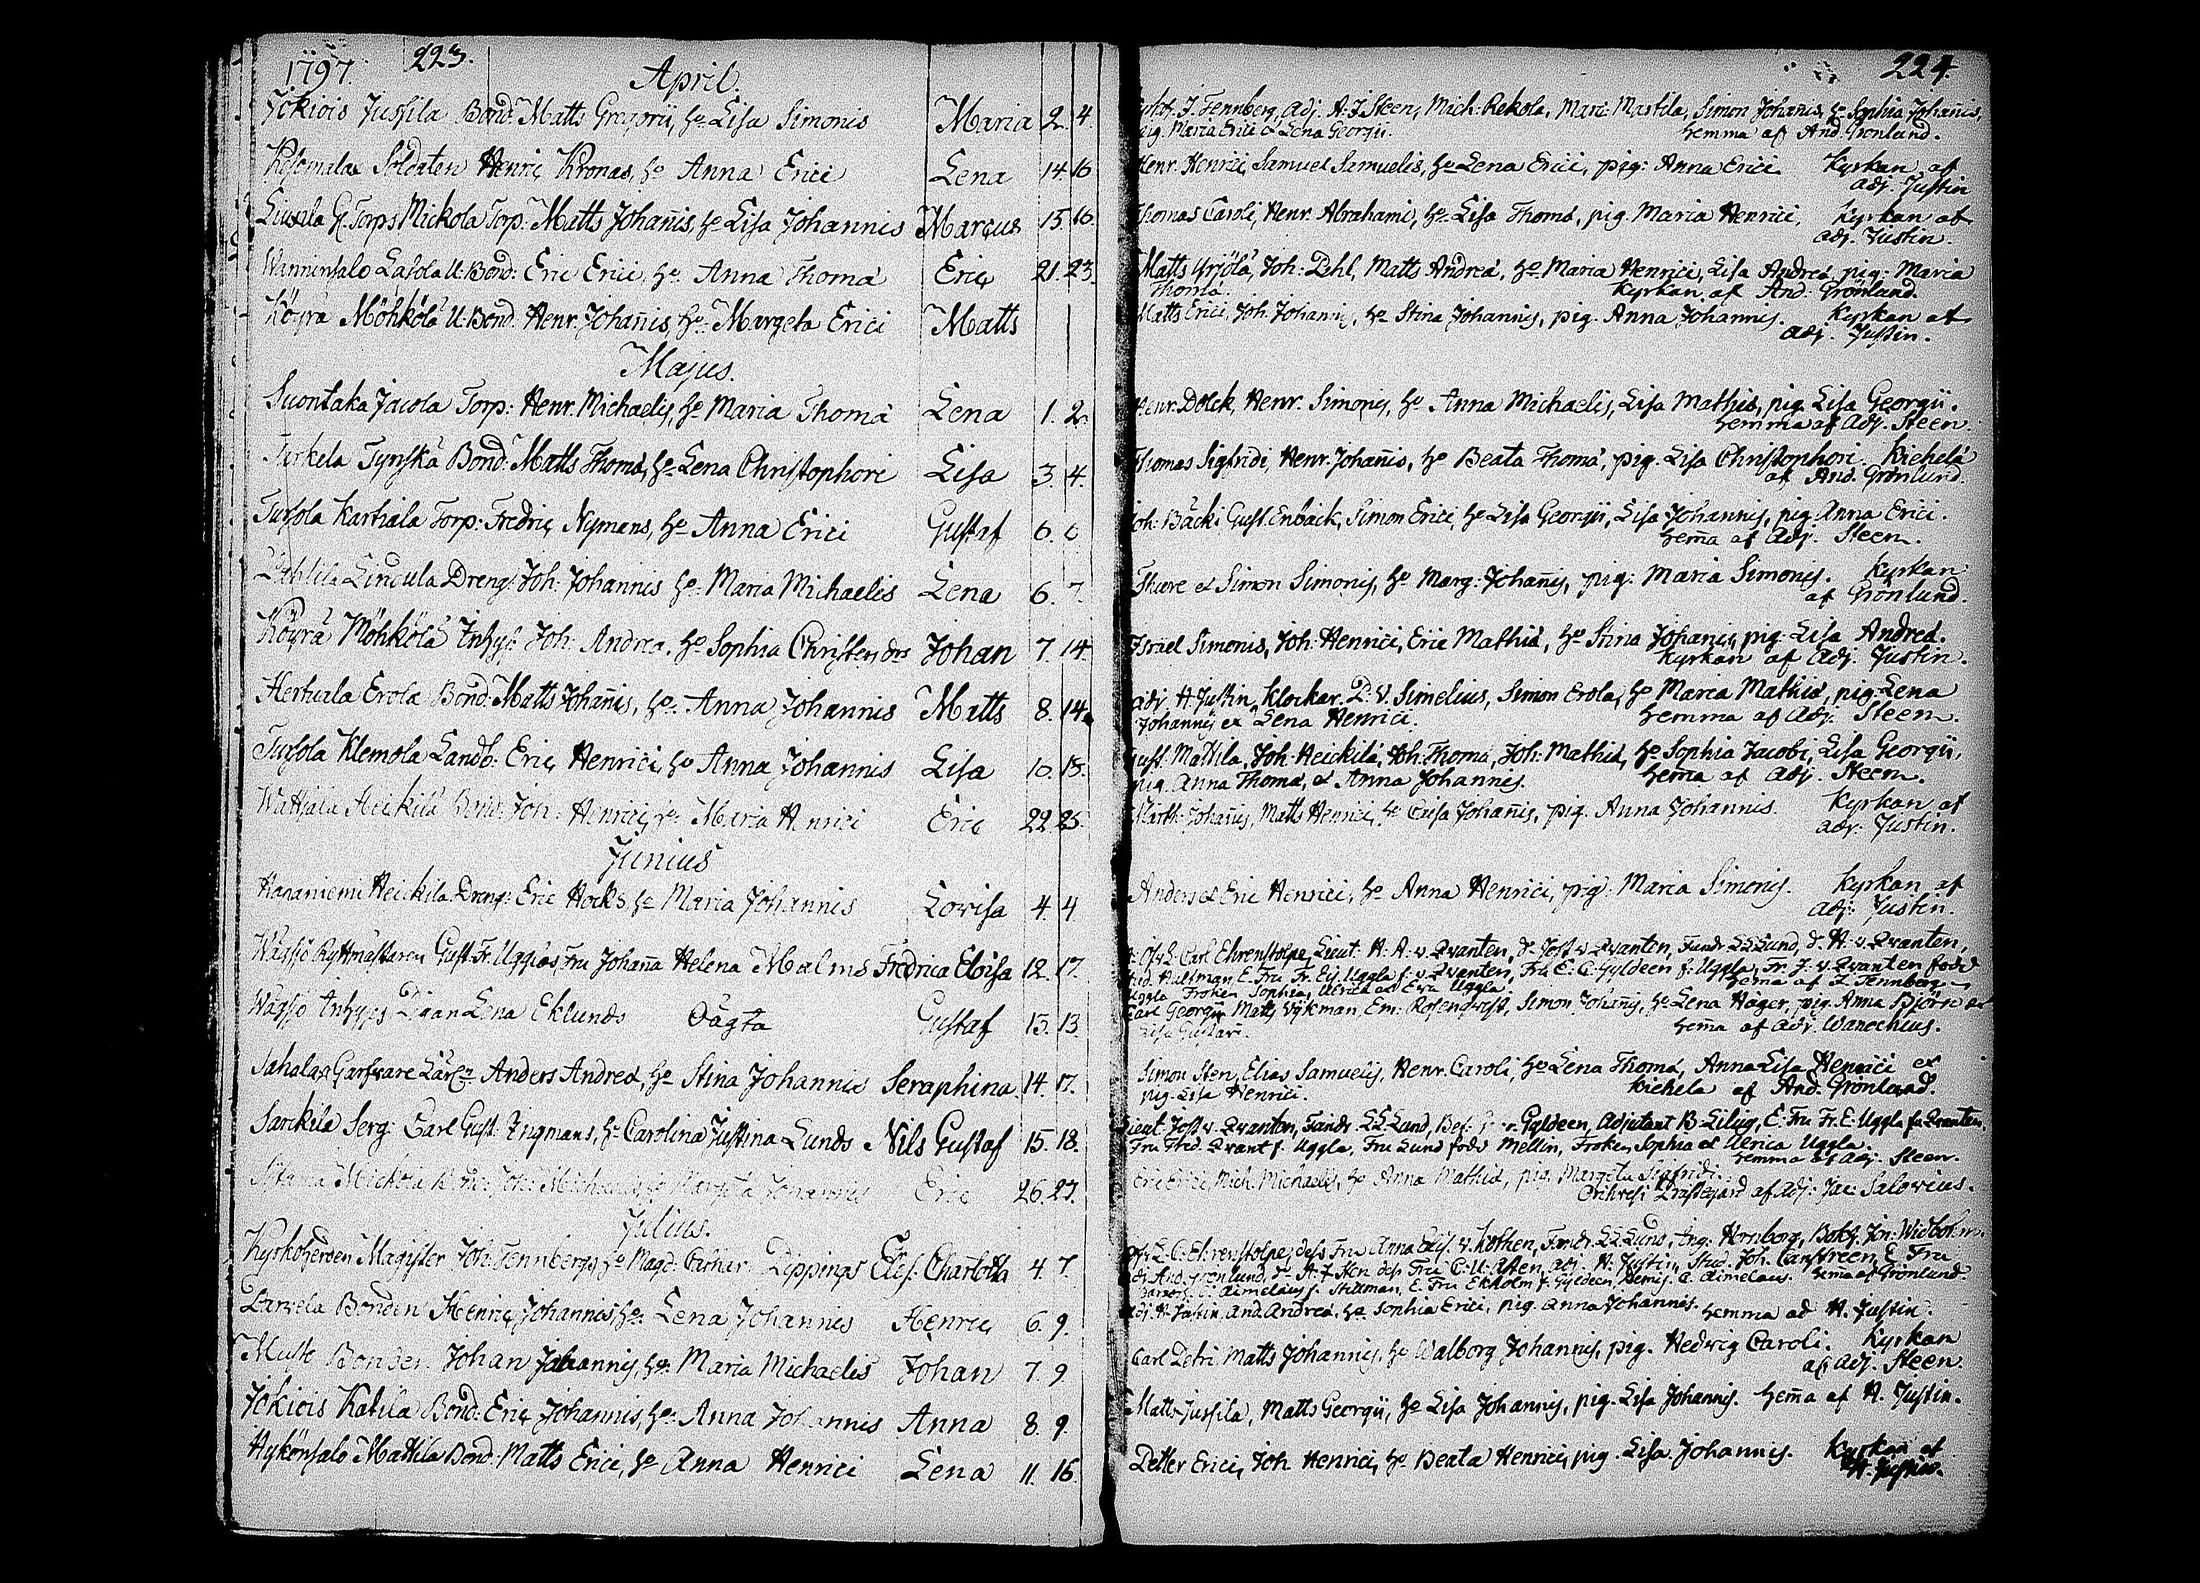 1797. 223.
April.
Jokiois Jussila Bond: Matts Gregorii, H:o Lisa Simonis Maria 2. 4.
Soldaten Henric Kronas, h:o Anna Erici Lena 14. 16
Torps Mickola Torp: Matts Johañis, h:o Lisa Johannis Marcus 15. 16.
Wanninsalo Lasola U: Bond: Eric Erici, h:o Anna Thomæ Eric 21. 23.
Köyrä Möhkölä U: Bond: Henr: Johañis, h:o Margeta Erici Matts
Majus.
Suontaka Jacola Torp: Henr: Michaelis, h:o Maria Thomæ Lena 1. 2.
Bond: Matts Thomæ, h:o Lena Christophori Lisa 3. 4.
Torp: Fredric Nymans, h:o Anna Erici Gustaf 6. 6.
Dreng: Joh: Johannis h:o Maria Michaelis Lena 6. 7.
Köyrä Möhkölä Inhys: Joh: Andreæ, h:o Sophia Christers d:rs Johan 7. 14.
Hertuala Erola Bond: Matts Johañis, h:o Anna Johannis Matts 8. 14.
Klemola Landb: Eric Henrici, h:o Anna Johannis Lisa 10. 15.
Heickilä Bond: Joh: Henrici, h:o Maria Henrici Eric 22. 25.
Junius
Heickilä Dreng: Eric Hocks h:o Maria Johannis Lovisa 4. 4
Wågsjö Ryttmästaren Gust. Fr: Ugglas, Fru Johaña Helena Malms Fredrica Eloisa 12. 17.
Wågsjö Inhyses Pigan Lena Eklunds Oägta Gustaf 13. 13
Anders Andreæ, h:o Stina Johannis Seraphina 14. 17.
Serg: Carl Gust. Ingmans, h:o Carolina Justina Lunds Nils Gustaf 15. 18.
Eric 26. 27.
Julius.
Kyrkoherden Magister Joh: Tennbergs, h:o Magd: Cathar: Lippings Elis: Charlotta 4. 7.
Bonden Henric Johannis, h:o Lena Johannis Henric 6. 9.
Bonden Johan Johannis, h:o Maria Michaelis Johan 7. 9
Jokiois Katila Bond: Eric Johannis, h:o Anna Johannis Anna 8. 9.
Mattila Bond: Matts Erici, h:o Anna Henrici Lena 11. 16.
224.
J. Tennberg, Adj. A: J Steen, Mich: Rekola, Mari: Marttila, Simon Johañis, h:o Sophia Johañis,
pig. Maria Erici & Lena Georgii. hemma af And: Grönlund.
Henr: Henrici, Samuel Samuelis, h:o Lena Erici, pig: Anna Erici. Kyrkan af
adj. Justin
Thomas Caroli, Henr: Abrahami, h:o Lisa Thomæ, pig. Maria Henrici. Kyrkan af
adj. Justin.
Matts Yrjölä, Joh: Pehl, Matts Andreæ, h:o Maria Henrici, Lisa Andreæ, pig: Maria
Thomæ. Kyrkan af And: Grönlund.
Matts Erici, Joh: Johannis, h:o Stina Johannis, pig. Anna Johannis. Kyrkan af
adj. Justin.
Henr: Simonis, h:o Anna Michaelis, Lisa Mathiæ, pig. Lisa Georgii.
hemma af adj. Steen.
Thomas Sigfridi, Henr: Johañis, h:o Beata Thomæ, pig. Lisa Christophori. Kiehelä
af And: Grönlund.
Joh: Bäcki, Gust. Enbäck, Simon Erici, h:o Lisa Georgii, Lisa Johannis, pig. Anna Erici.
hem̃a af Adj. Steen.
Simon Simonis, h:o Marg: Johañis, pig: Maria Simonis. Kyrkan
af Grönlund.
Israel Simonis, Joh: Henrici, Eric Mathiæ, h:o Stina Johanis, pig. Lisa Andreæ.
Kyrkan af adj. Justin.
adj. H. Justin, Klockar. P. V. Simelius, Simon Erola, h:o Maria Mathiæ, pig. Lena
Johannis & Lena Henrici. hemma af adj. Steen.
Gust. Mattila, Joh: Heickilä, Joh: Thomæ, Joh: Mathiæ, h:o Sophia Jacobi, Lisa Georgii,
pig. Anna Thomæ, & Anna Johannis. hem̃a af adj. Steen.
Johañis, Matts Henrici, h:o Caisa Johañis, pig. Anna Johannis Kyrkan af
adj. Justin.
Anders & Eric Henrici, h:o Anna Henrici, pig: Maria Simonis. Kyrkan af
Adj. Justin.
Carl Ehrenstolpe, Lieut: H. A. v. Qvanten, d:o Jost v. Qvanten, Fändr. Lund, d:o H. v. Qvanten,
Hallman, E. Fru Fr. El: Uggla f. v. Qvanten, Fru E: C: Gyldeen f. Uggla, Fr. J. v. Qvanten född
Uggla Fröken Sophia, Ulrica & Eva Uggla. hem̃a af J. Tennberg.
Carl Georgii Matts Vykman, Em: Rosenqvist, Simon Johañis, h:o Lena Hager, pig. Anna Björn &
Lisa Gustavi. hem̃a af adj. Wanochius.
Simon Sten, Elias Samuelis, Henr: Caroli, h:o Lena Thomæ, Anna Lisa Henrici &
pig. Lisa Henrici. Kiehelä af And: Grönlund.
Lieut. Jost v. Qvanten, Fändr. Lund, Gyldeen, Adjutant B: Lilug, E. Fru Fr. E: Uggla f. Qvanten,
Fru Fred. Qvant f. Uggla, Fru Lund född Mellin, Fröken Sophia et Ulrica Uggla.
hemma af adj. Steen.
Eric Erici, Mich: Michaelis, h:o Anna Mathiæ, pig. Margeta Sigfridi.
Prästegård af adj: Jac: Salovius.
C: Ehrenstolpe, dess Fru Anna Elis. v. Kothen, Fändr. Lund, Ing. Hornborg, Bokh. Jon: Widbohm
And. Grönlund, A. J. Sten dess Fru C: U: Aften, adj. H. Justin, Stud. Joh. E. Fru
Aimelaeus f. Stillman, E. Fru Ekholm f. Gyldeen, Aimelaeus. hem̃a af Grönlund.
Adj. H. Justin, And. Andreæ, h:o Sophia Erici, pig. Anna Johannis. hemma ad H. Justin.
Carl Petri, Matts Johannis, h:o Walborg Johannis, pig. Hedwig Caroli. Kyrkan
af adj. Steen.
Matts Jussila, Matts Georgii, h:o Lisa Johannis, pig. Lisa Johannis. hem̃a af H. Justin.
Petter Erici, Joh: Henrici, h:o Beata Henrici, pig. Lisa Johannis. Kyrkan af
H. Justin.